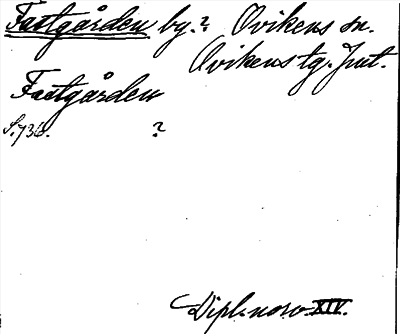 Fastgården by.? Ovikens sn.
Ovikens tg. Jmt.
Fastgården
S. 736. ?
Dipl. norv. XIV.